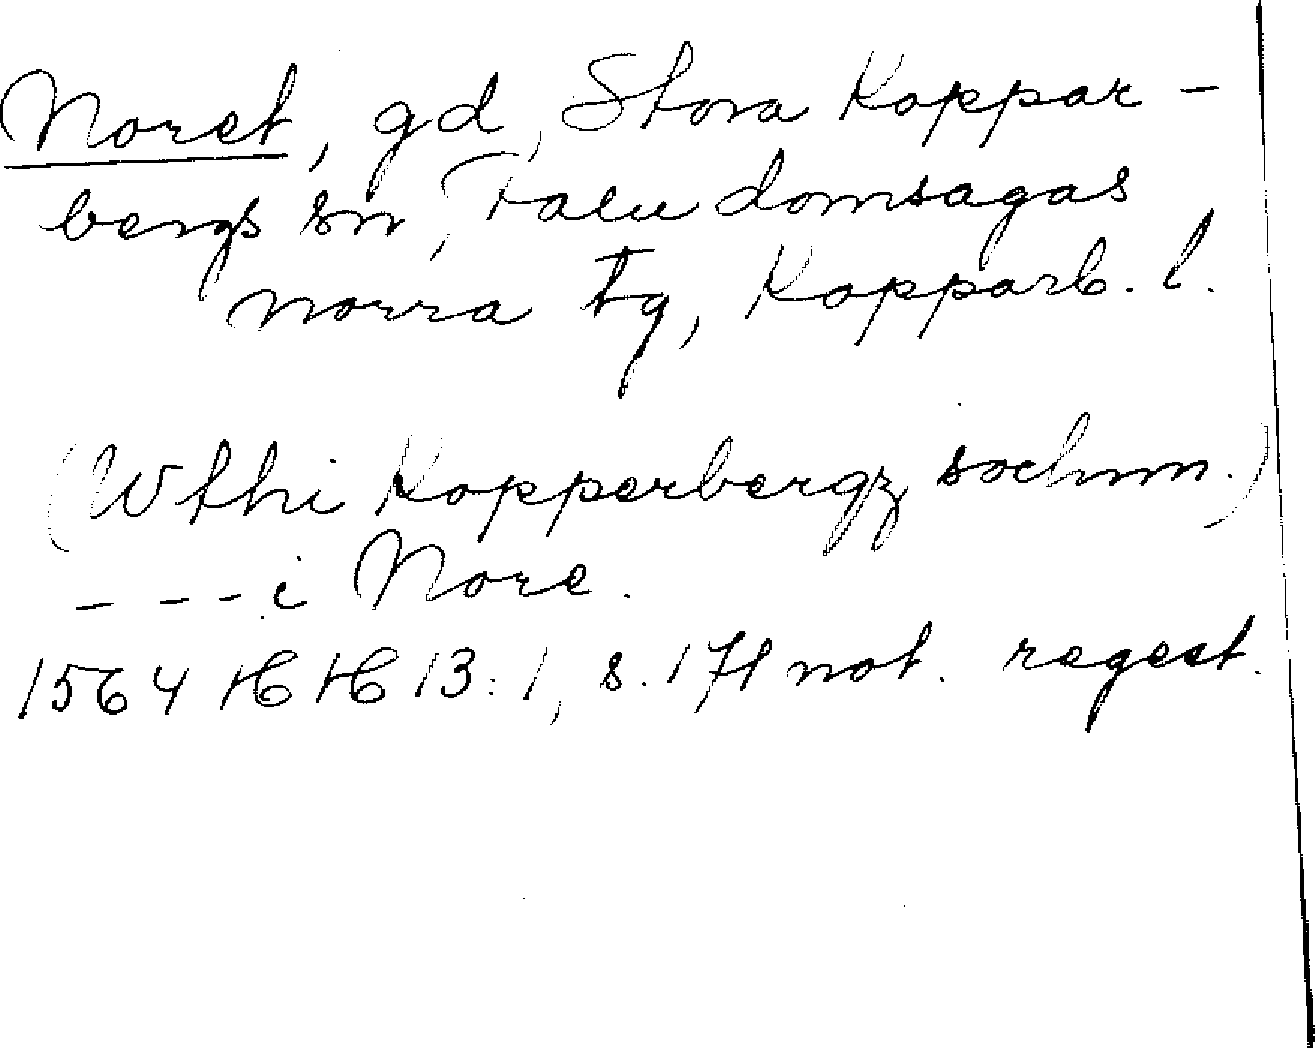 Noret, gd, Stora Koppar-
bergs sn, Falu domsagas
norra tg, Kopparb. l.
(Wthi Kopperbergz sochnn.)
- - - i Nore.
1564 HH 13:1, s. 171 not. regest.